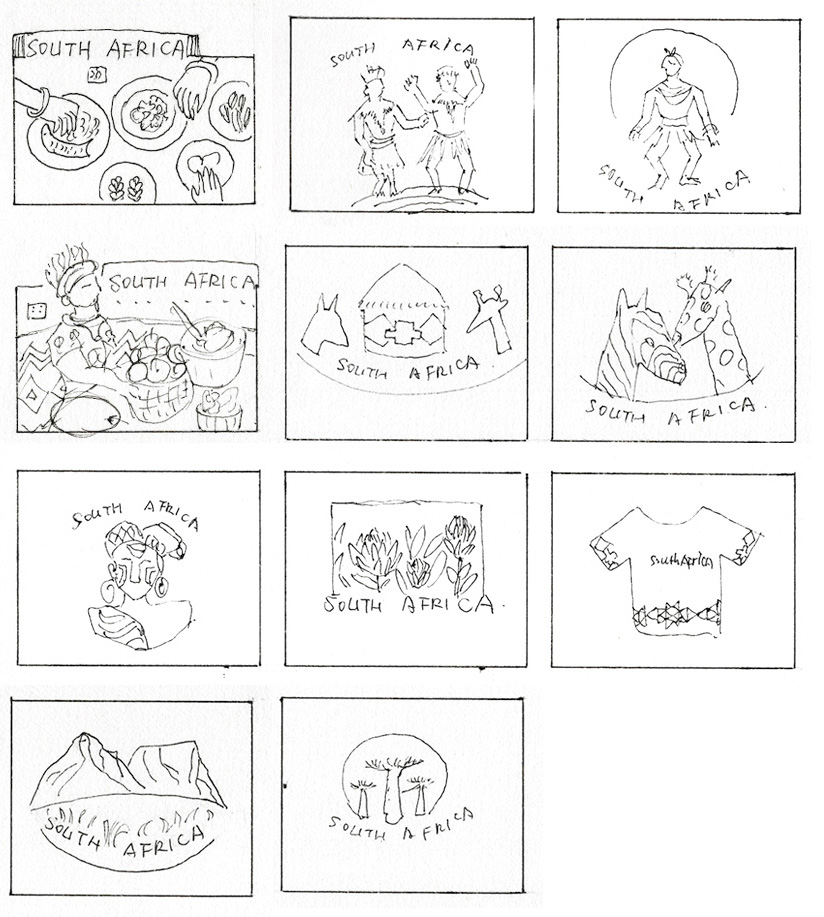 SOUTH AFRICA
SOUTH AFRICA
SOUTH AFRICA
SOUTH AFRICA
SOUTH AFRICA
SOUTH AFRICA.
SOUTH AFRICA
SOUTH AFRICA.
South Africa
SOUTH AFRICA
SOUTH AFRICA